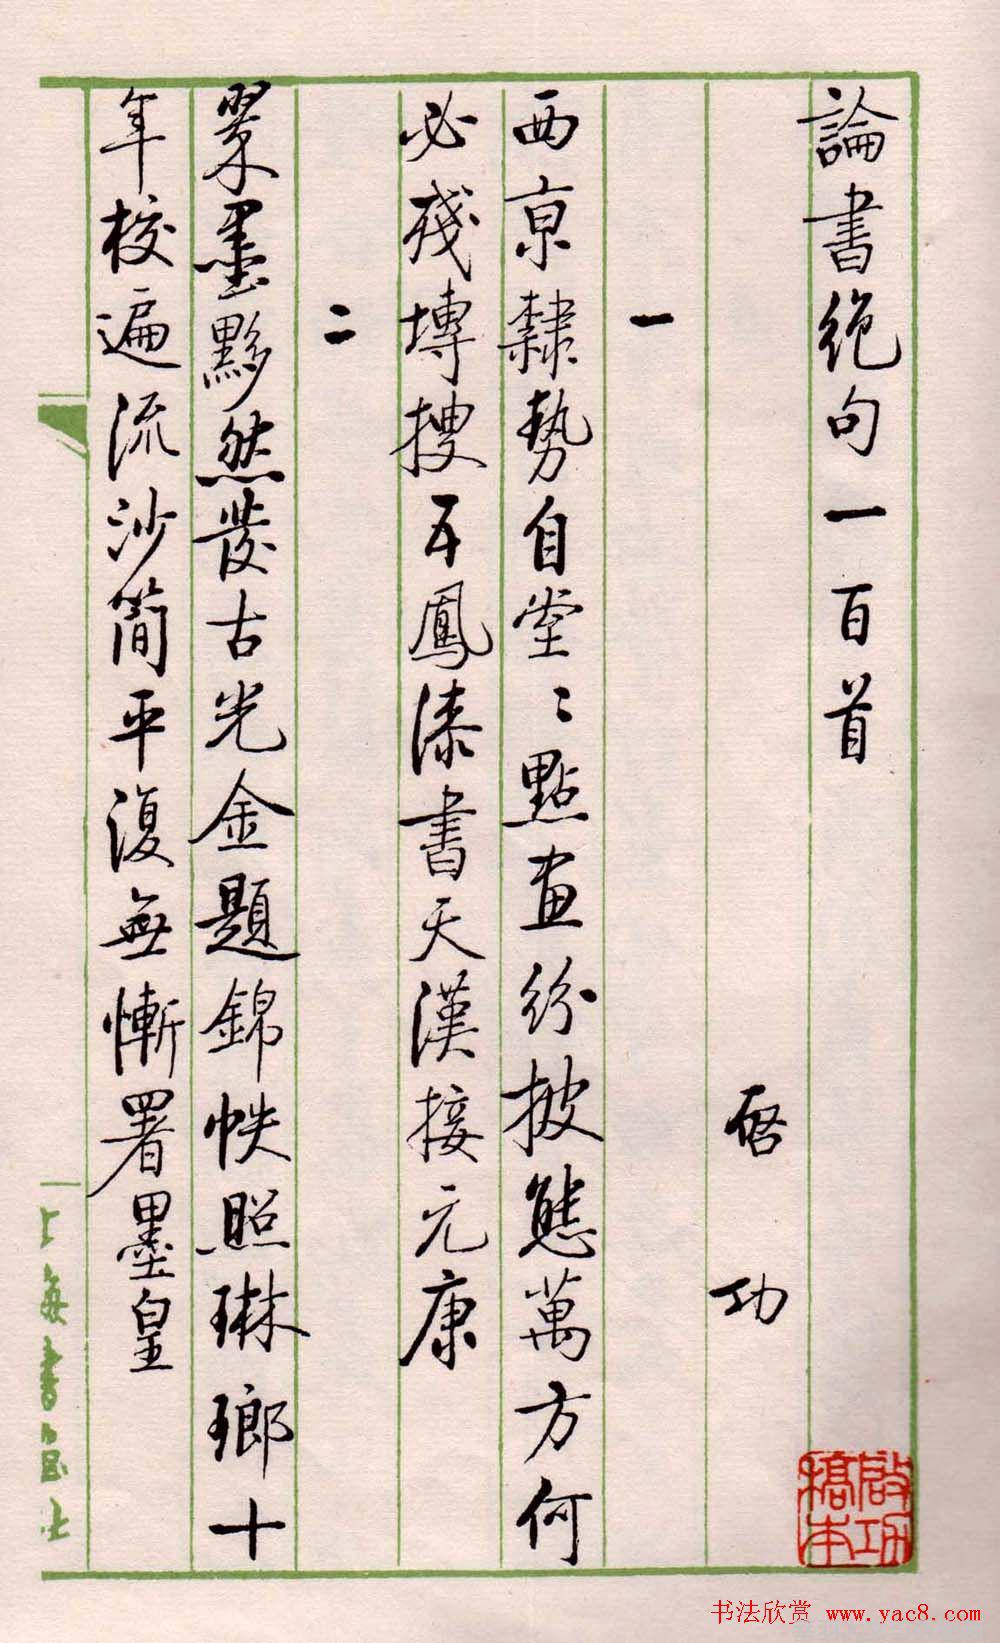 論書絕句一百首
啓功
一
西京隸勢自堂〻點畫紛披態萬方何
必殘塼搜五鳳漆書天漢接元康
二
翠墨黟然發古光金題錦帙照琳瑯十
年校遍流沙簡平復無慚署墨皇
啟功
稿本
上海書画社
书法欣赏 www.yac8.com